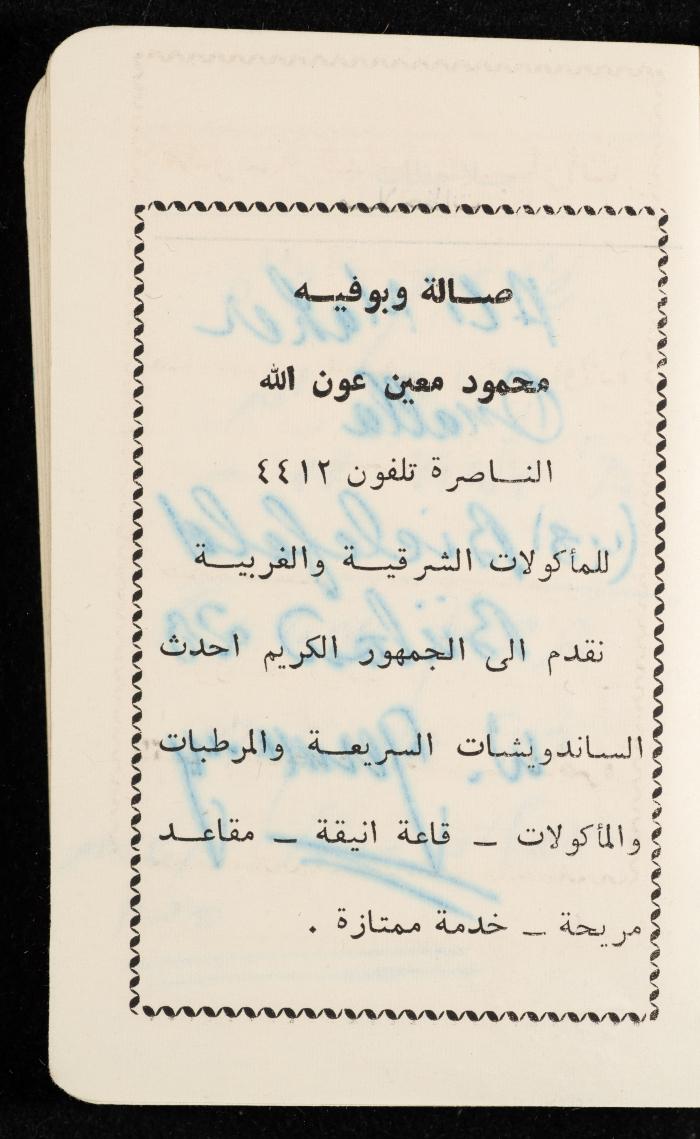 صالة وبوفيه
محمود معين عون الله
الناصرة تلفون ٤٤١٢
للمأكولات الشرقية والغربية
نقدم الى الجمهور الكريم احدث
الساندويشات السريعة والمرطبات
والمأكولات - قاعة انيقة - مقاعد
مريحة - خدمة ممتازة .